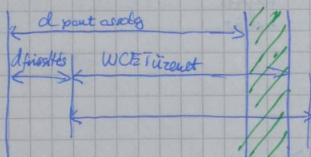 d pont
d frissítés WCET üzenet